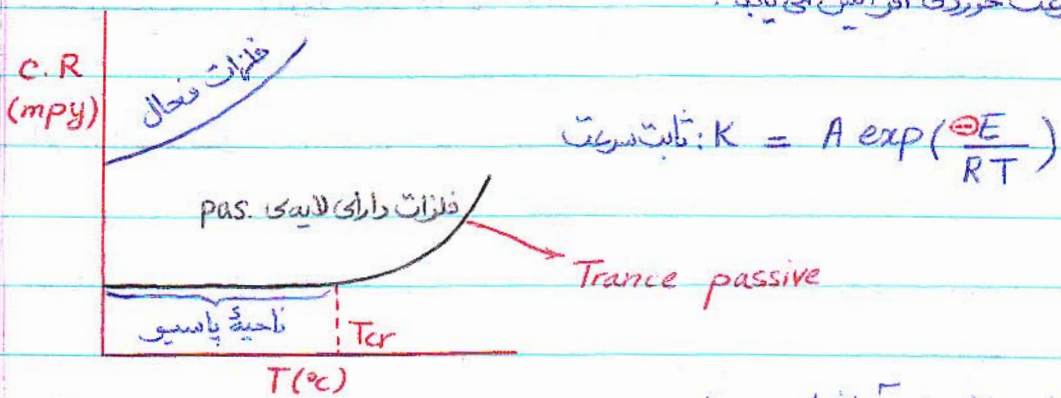 سرعت خوردگی افزایش می یابد.
C.R
(mpy)
فلزات فعال
ثابت سرعت: K = A exp(-E/RT)
فلزات دارای لایه‌ی pas.
Trance passive
ناحیهٔ پاسیو
Tcr
T(°c)